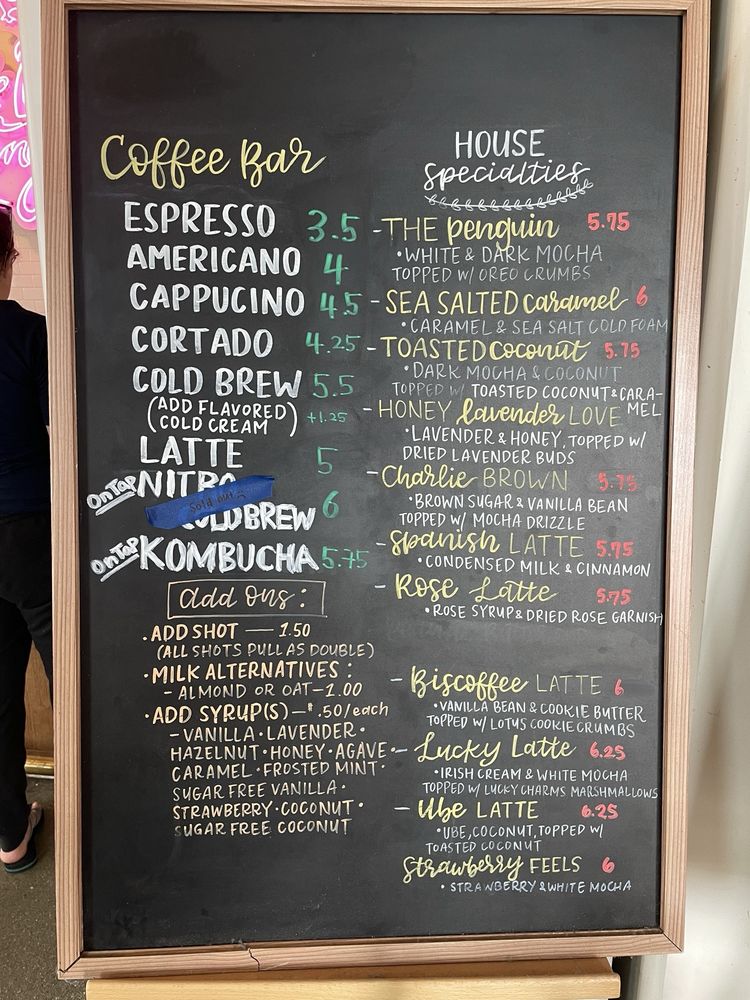 Coffee Bar
ESPRESSO 3.5
AMERICANO 4
CAPPUCINO 4.5
CORTADO 4.25
COLD BREW 5.5
(ADD FLAVORED COLD CREAM) +1.25
LATTE 5
On Tap NITRO
Sold out
COLDBREW 6
On Tap KOMBUCHA 5.75
add ons:
· ADD SHOT — 1.50
(ALL SHOTS PULL AS DOUBLE)
· MILK ALTERNATIVES:
- ALMOND OR OAT - 1.00
· ADD SYRUP(S) - $.50/each
- VANILLA · LAVENDER ·
HAZELNUT · HONEY · AGAVE ·
CARAMEL · FROSTED MINT ·
SUGAR FREE VANILLA ·
STRAWBERRY · COCONUT ·
SUGAR FREE COCONUT
HOUSE
specialties
- THE penguin 5.75
· WHITE & DARK MOCHA
TOPPED W/ OREO CRUMBS
- SEA SALTED caramel 6
· CARAMEL & SEA SALT COLD FOAM
- TOASTED coconut 5.75
· DARK MOCHA & COCONUT
TOPPED W/ TOASTED COCONUT & CARA-
MEL
- HONEY lavender LOVE
· LAVENDER & HONEY, TOPPED W/
DRIED LAVENDER BUDS
- Charlie BROWN 5.75
· BROWN SUGAR & VANILLA BEAN
TOPPED W/ MOCHA DRIZZLE
- Spanish LATTE 5.75
· CONDENSED MILK & CINNAMON
- Rose Latte 5.75
· ROSE SYRUP & DRIED ROSE GARNISH
- Biscoffee LATTE 6
· VANILLA BEAN & COOKIE BUTTER
TOPPED W/ LOTUS COOKIE CRUMBS
- Lucky Latte 6.25
· IRISH CREAM & WHITE MOCHA
TOPPED W/ LUCKY CHARMS MARSHMALLOWS
- Ube LATTE 6.25
· UBE, COCONUT, TOPPED W/
TOASTED COCONUT
Strawberry FEELS 6
· STRAWBERRY & WHITE MOCHA